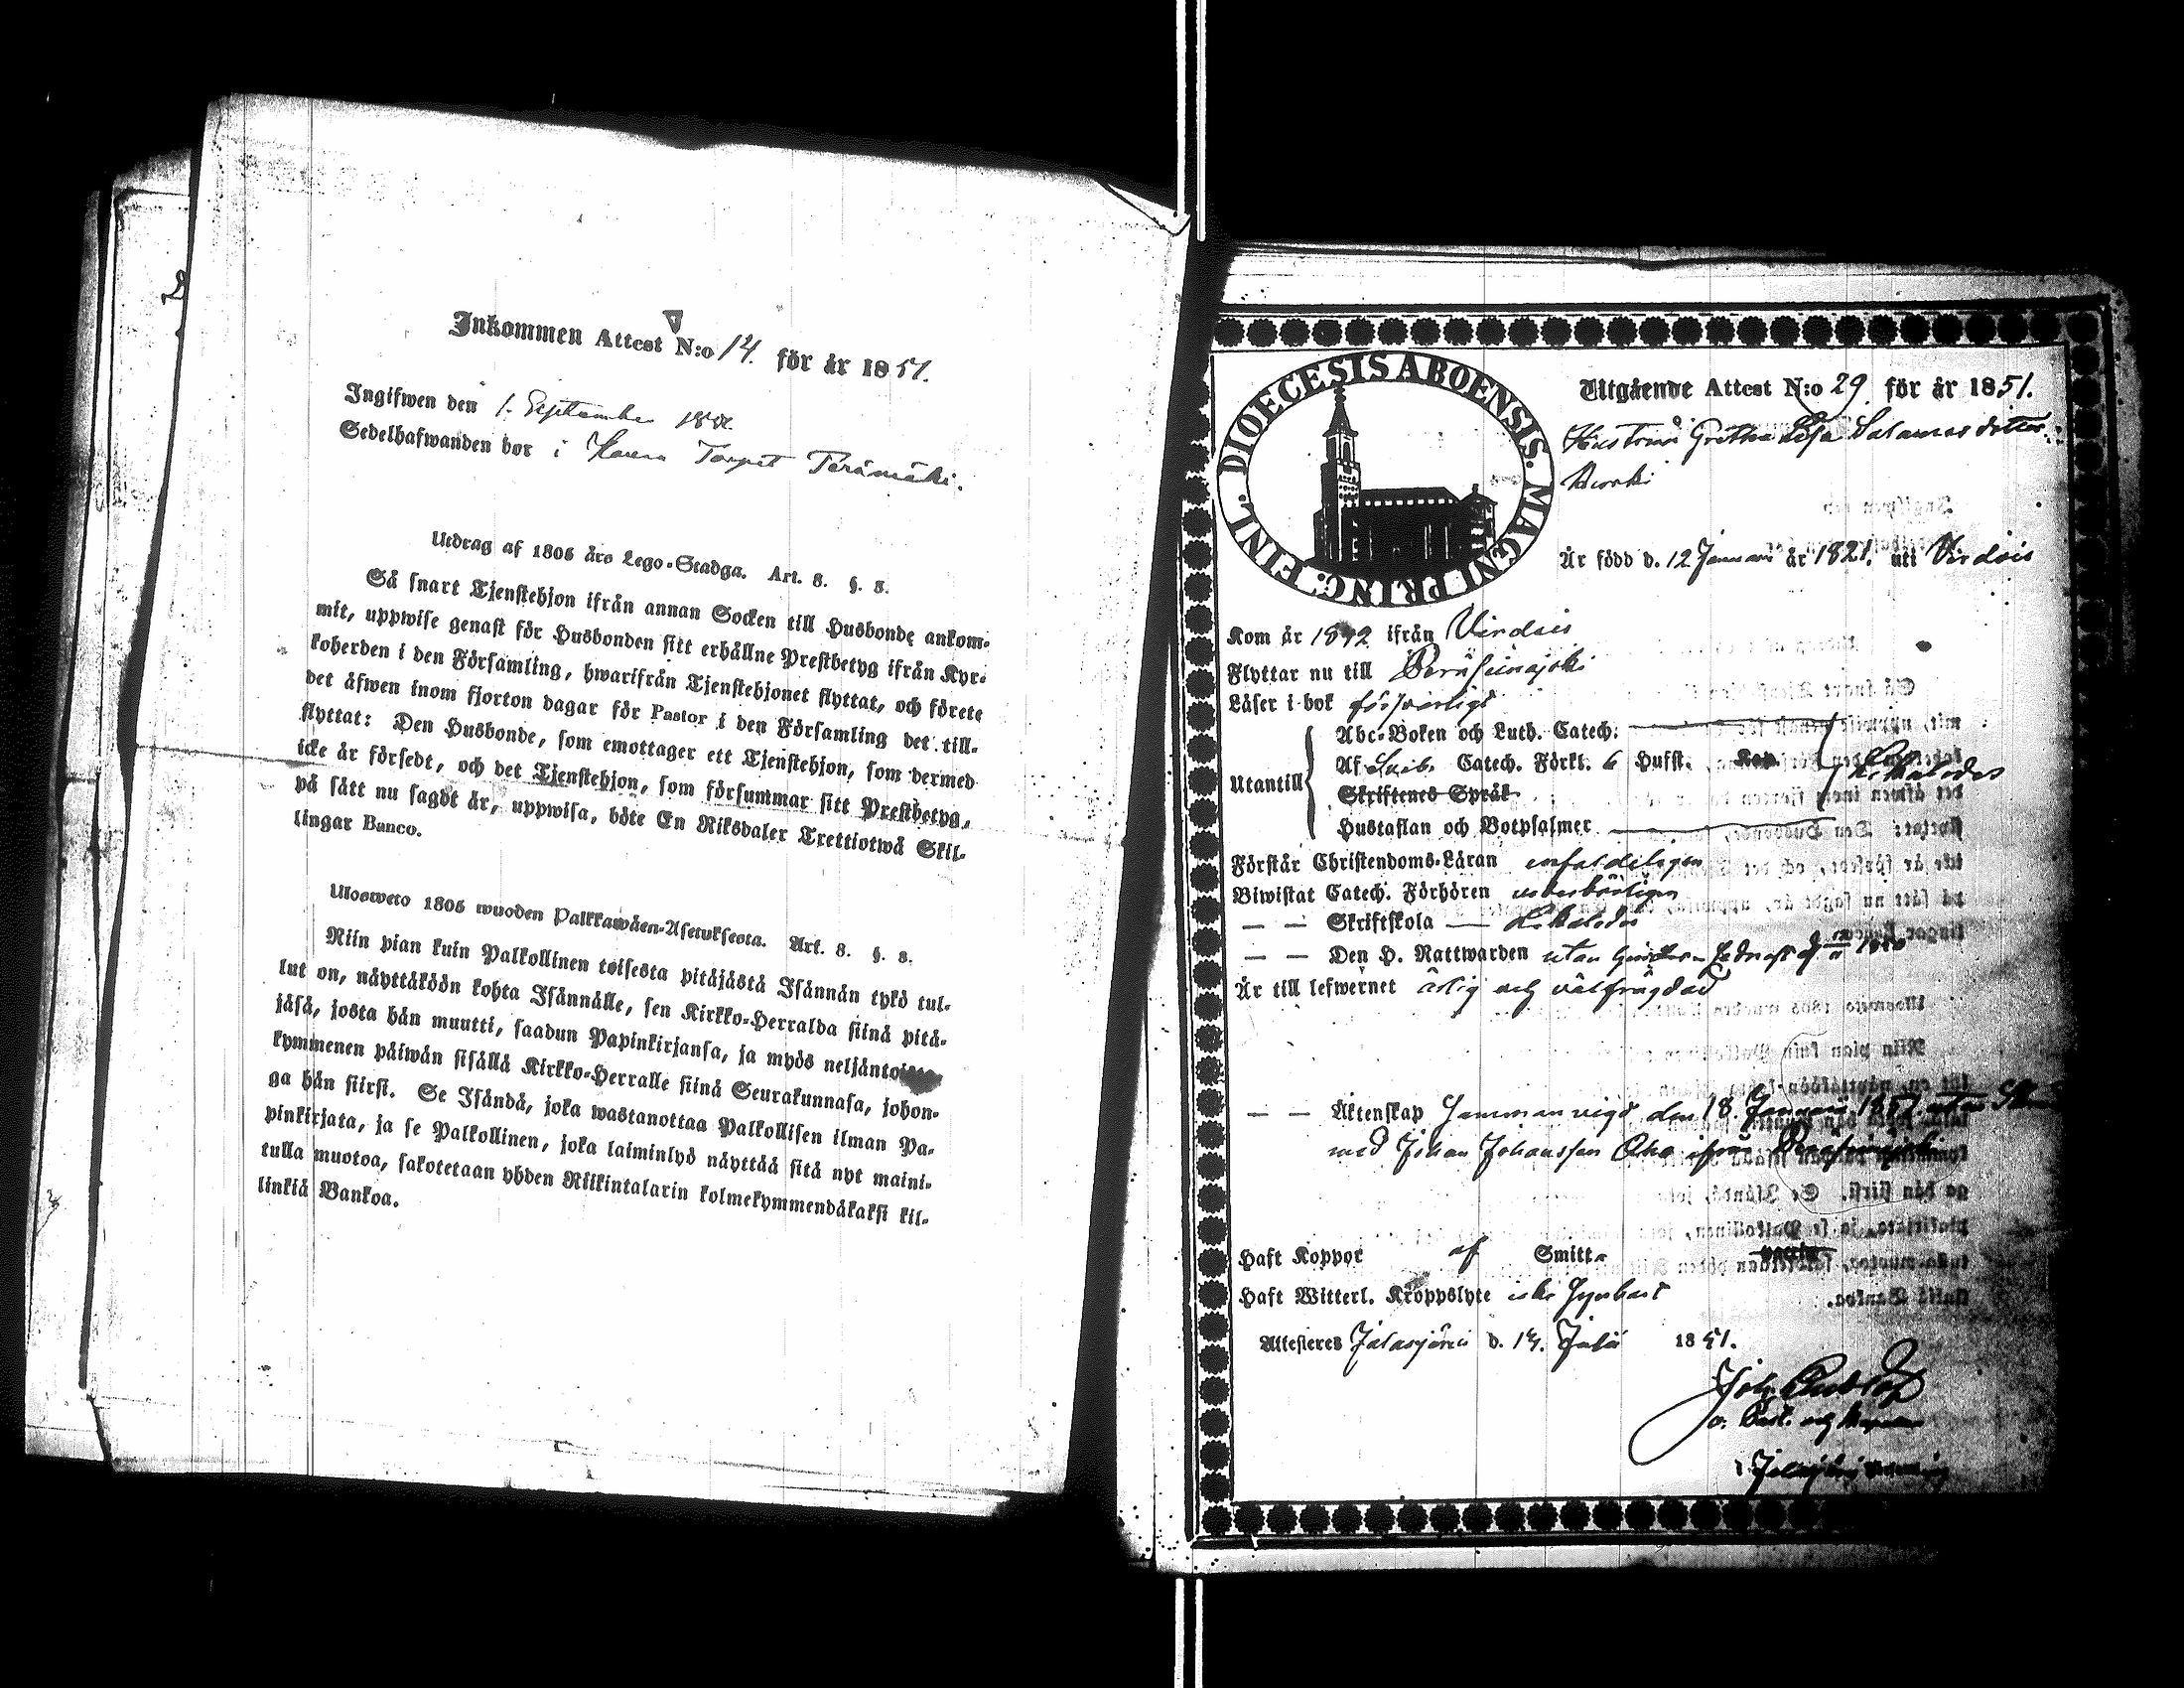 Inkommen Attest N:o 14. för år 1851.
Ingifwen den 1. September 1851
Sedelhafwanden bor i Torpet Perämäki.
Utdrag af 1805 års Lego-Stadga. Art. 8. §. 8.
Så snart Tjenstehjon ifrån annan Socken till Husbonde ankom-
mit, uppwise genast för Husbonden sitt erhållne Prestbetyg ifrån Kyr-
koherden i den Församling, hwarifrån Tjenstehjonet flyttat, och förete
det äfwen inom fjorton dagar för Pastor i den Församling det till-
flyttat: Den Husbonde, som emottager ett Tjenstehjon, som dermed
icke är försedt, och det Tjenstehjon, som försummar sitt Prestbetyg,
på sätt nu sagdt är, uppwisa, böte En Riksdaler Trettiotwå Skil-
lingar Banco.
Ulosweto 1805 wuoden Palkkawäen-Asetuksesta. Art. 8. §. 8.
Niin pian kuin Palkollinen toisesta pitäjästä Isännän tykö tul-
lut on, näyttäköön kohta Isännälle, sen Kirkko-Herralda siinä pitä-
jäsä, josta hän muutti, saadun Papinkirjansa, ja myös neljäntoista
kymmenen päiwän sisällä Kirkko-Herralle siinä Seurakunnasa, johon-
ga hän siirsi. Se Isändä, joka wastanottaa Palkollisen ilman Pa-
pinkirjata, ja se Palkollinen, joka laiminlyö näyttää sitä nyt maini-
tulla muotoa, sakotetaan yhden Riikintalarin kolmekymmendäkaksi kil-
linkiä Bankoa.
FINL. DIOECESIS ABOENSIS. MAGNI PRINC:
Utgående Attest N:o 29 för år 1851.
Hustrun Gretha Lisa Salomos dotter
Är född d. 12 Januari år 1821. uti Virdois
Kom år 1842 ifrån Virdois
Flyttar nu till Peräseinäjoki
Läser i bok försvarligt
Utantill
Abc-Boken och Luth. Catech:
Af Sveb. Catech. Förkl. 6 Hufst. Kap. Likaledes
Skriftenes Språk
Hustaflan och Botpsalmer
Förstår Christendoms-Läran enfaldeligen
Biwistat Catech. Förhören
— — Skriftskola — Likaledes
— — Den H. Nattwarden utan
Är till lefwernet ärlig och välfrägdad
— — Äktenskap Samman vigd den 18. Januari 1851
med Johan Johansson Aho ifrån Peräseinäjoki
Haft Koppor af Smitt.
Haft Witterl. Kroppslyte icke synbart
Attesteres Jalasjärvi d. 14. Juli 1851.